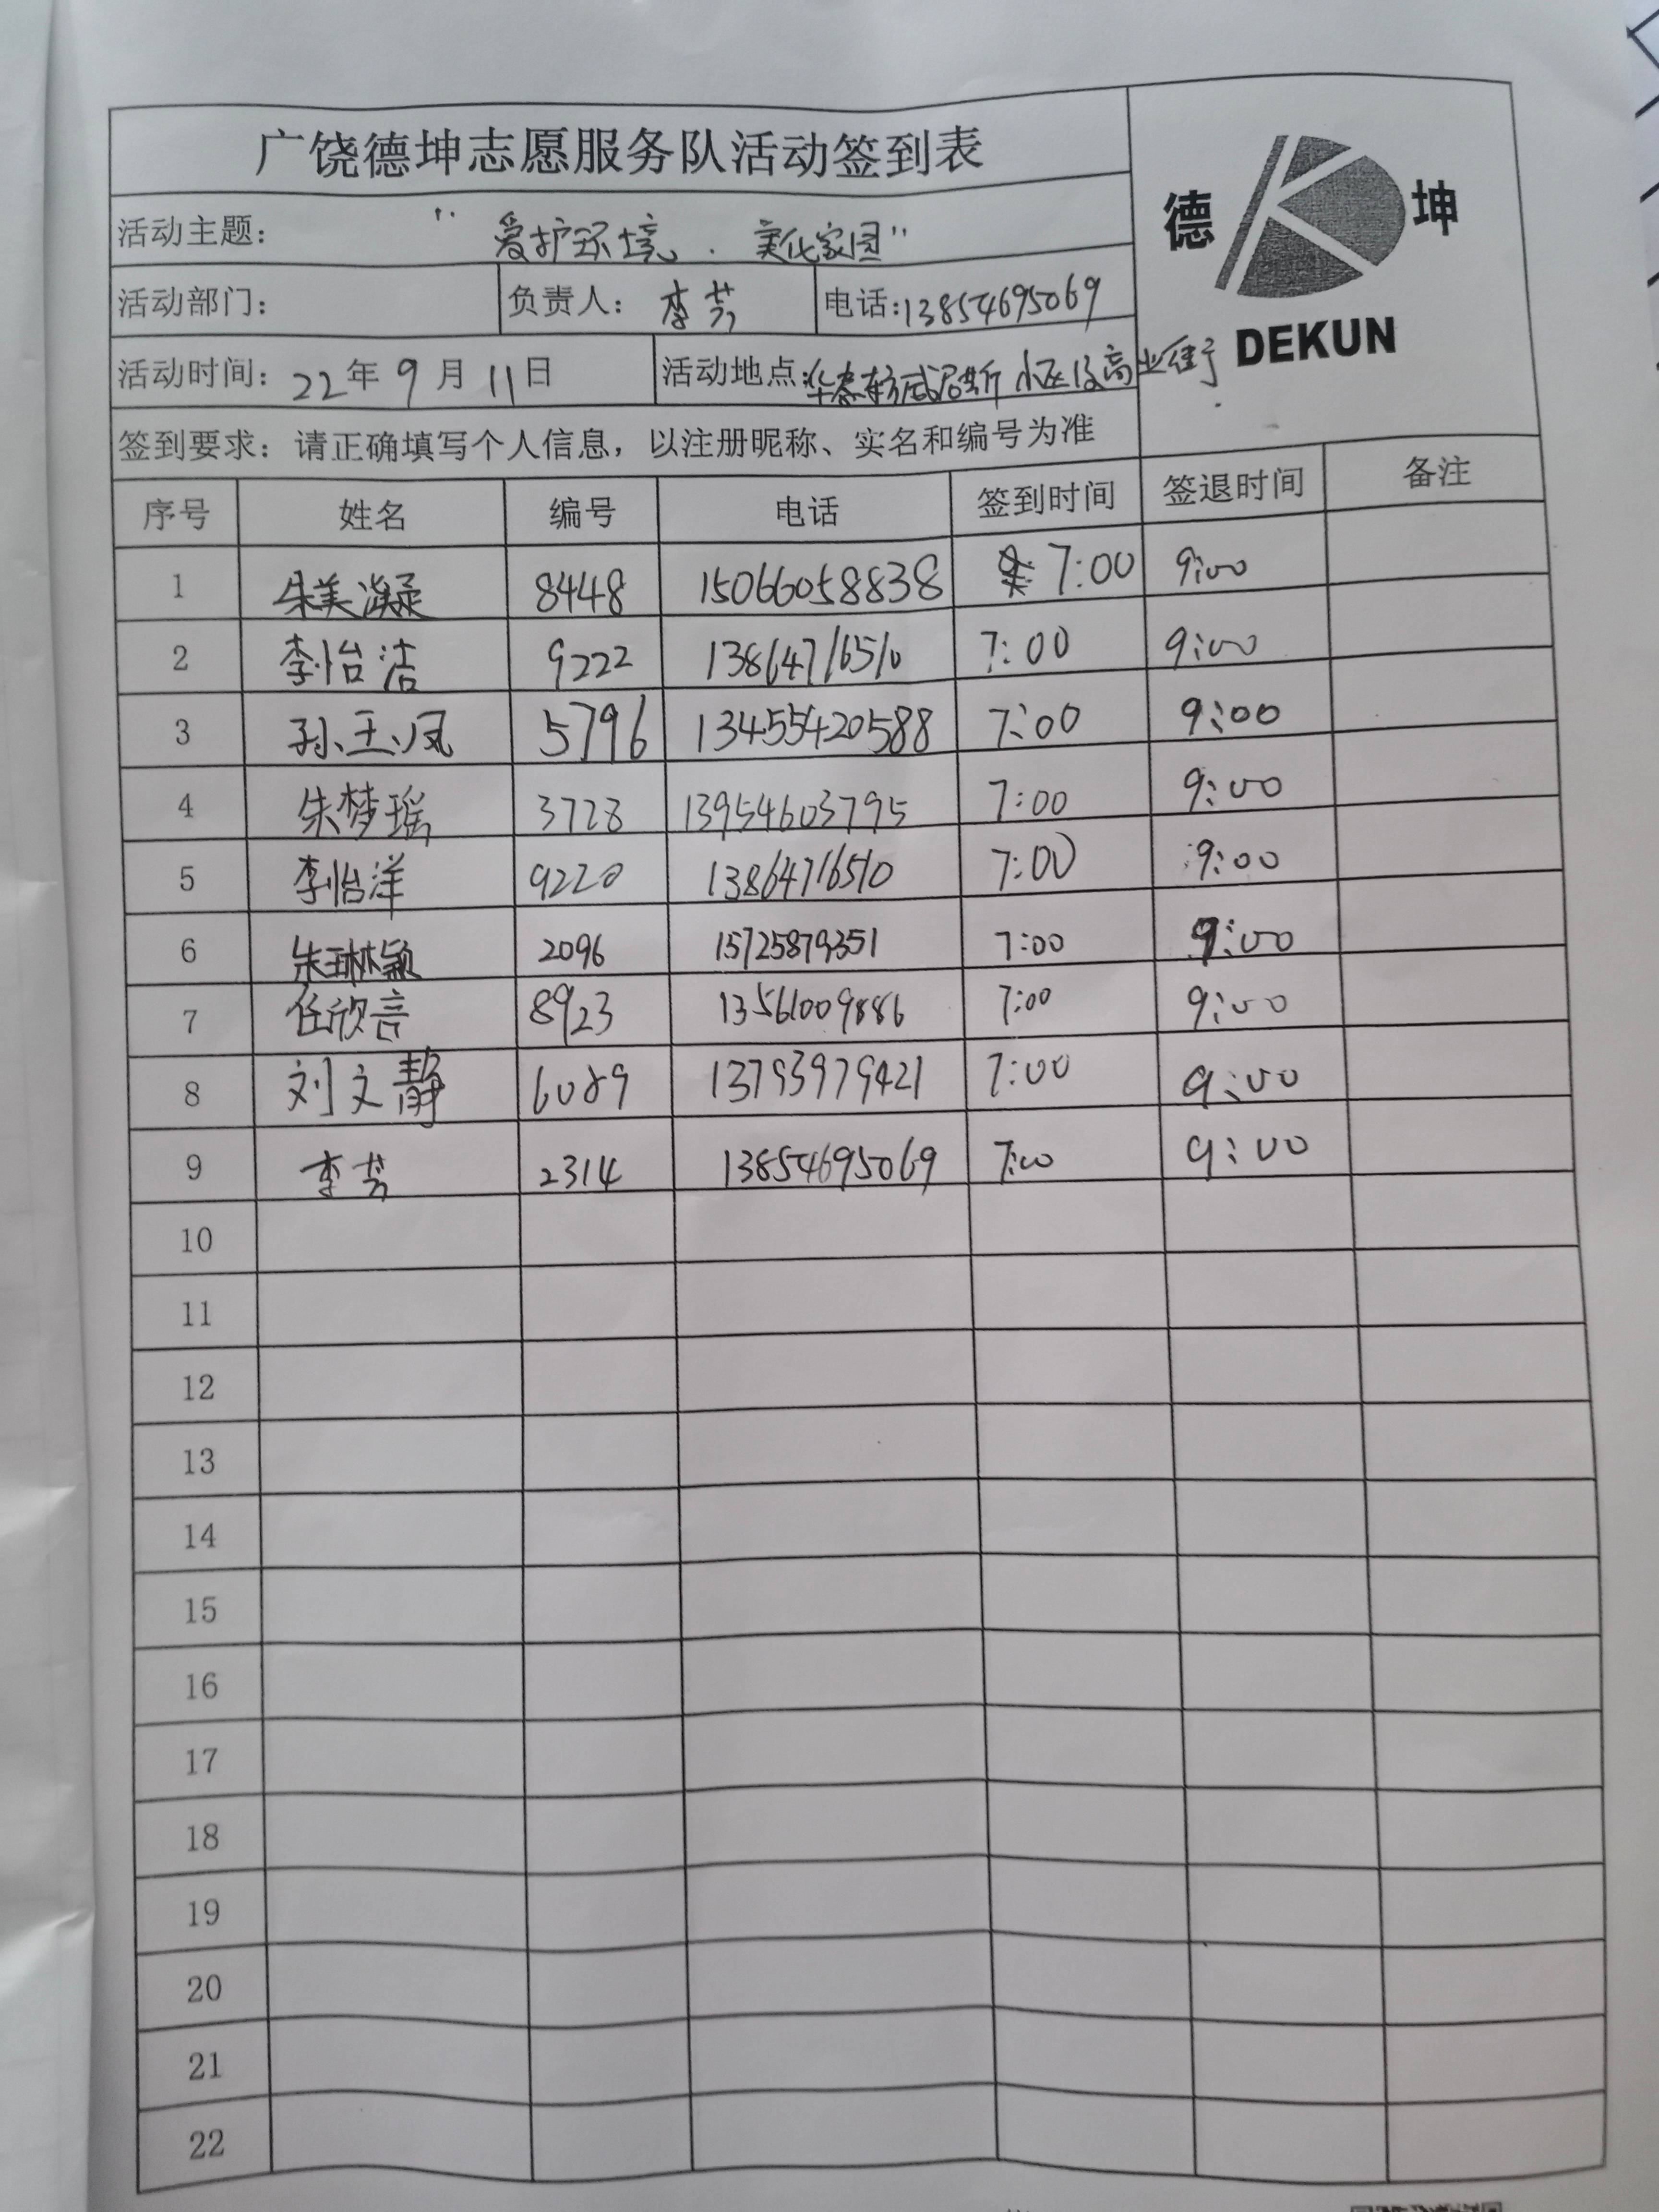 广饶德坤志愿服务队活动签到表
德 坤
DEKUN
活动主题： "爱护环境．美化家园"
活动部门： 负责人：李芳 电话:13854695069
活动时间：22年9月11日 活动地点:华泰东方威尼斯小区及商业街
签到要求：请正确填写个人信息，以注册昵称、实名和编号为准
序号 姓名 编号 电话 签到时间 签退时间 备注
1 朱美凝 8448 15066058838 7:00 9:00
2 李怡洁 9222 13864716510 7:00 9:00
3 孙玉凤 5796 13455420588 7:00 9:00
4 朱梦瑶 3728 13954603795 7:00 9:00
5 李怡洋 9220 13864716510 7:00 9:00
6 朱琳颖 2096 15725879351 7:00 9:00
7 任欣言 8923 13561009886 7:00 9:00
8 刘文静 6089 13793979421 7:00 9:00
9 李芳 2314 13854695069 7:00 9:00
10
11
12
13
14
15
16
17
18
19
20
21
22